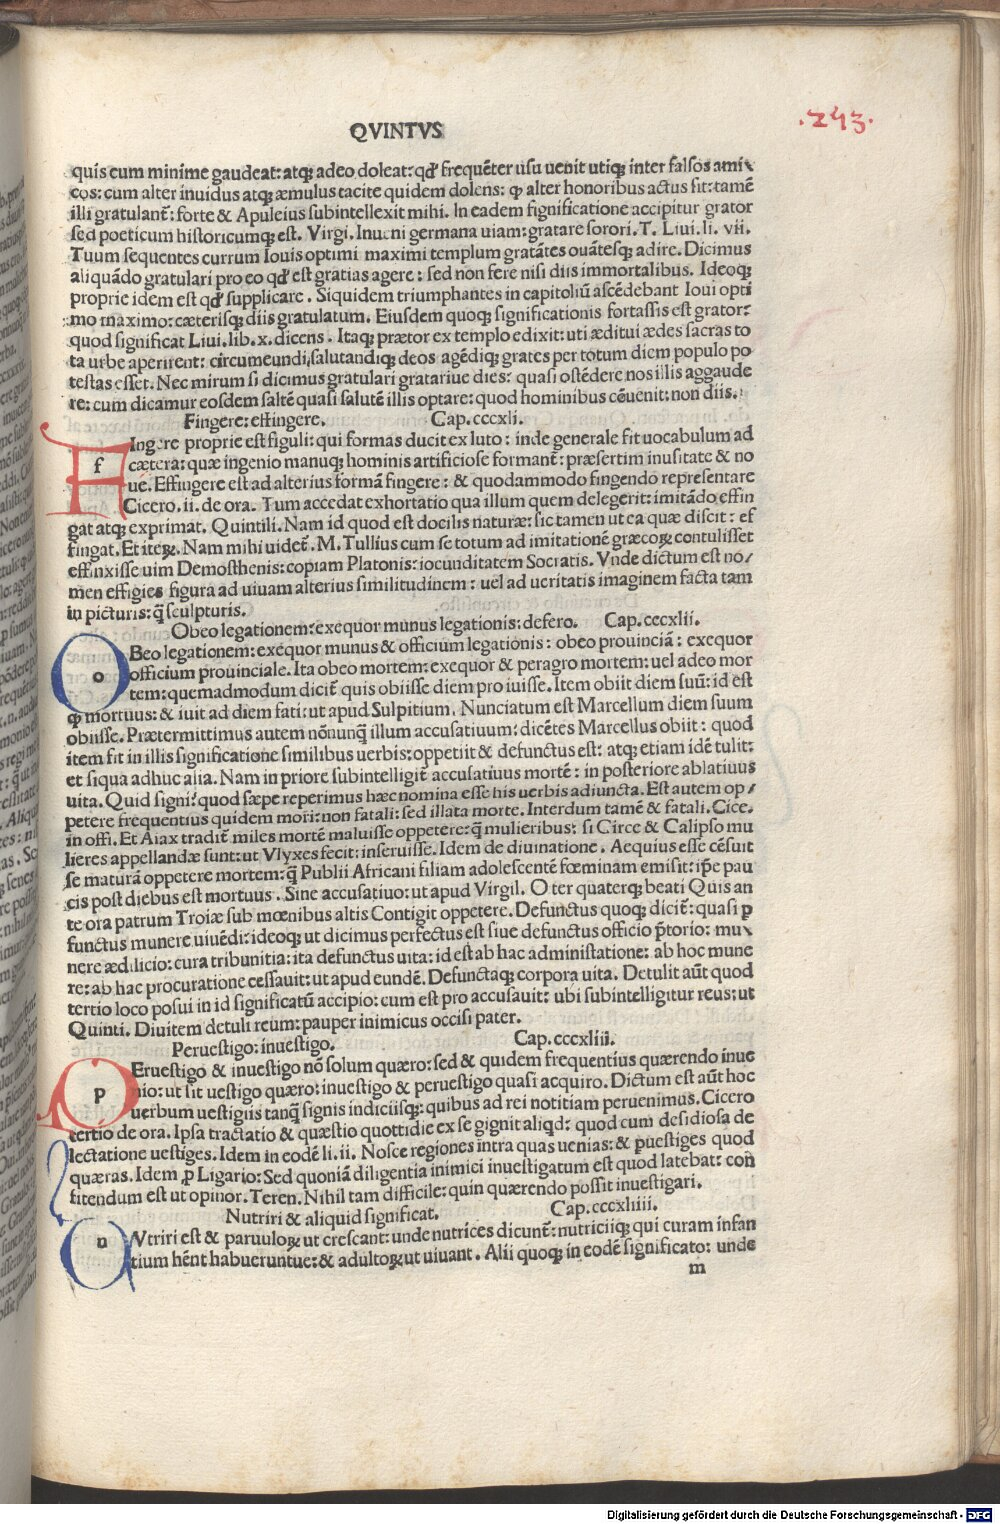 QVINTVS
.243.
quis eum minime gaudeat: atqꝫ adeo doleat: qđ frequẽter usu uenit utiqꝫ inter falsos ami\
cos: cum alter inuidus atqꝫ æmulus tacite quidem dolens: ꝙ alter honoribus actus sit: tamẽ
illi gratulant̃: forte & Apuleius subintellexit mihi. In eadem significatione accipitur grator
sed poeticum historicumqꝫ est. Virgi. Inueni germana uiam: gratare sorori. T. Liui. li. vii.
Tuum sequentes currum Iouis optimi maximi templum gratãtes ouãtesqꝫ adire. Dicimus
aliquãdo gratulari pro eo qđ est gratias agere: sed non fere nisi diis immortalibus. Ideoqꝫ
proprie idem est qđ supplicare. Siquidem triumphantes in capitoliũ ascẽdebant Ioui opti
mo maximo: cæterisqꝫ diis gratulatum. Eiusdem quoqꝫ significationis fortassis est grator:
quod significat Liui. lib. x. dicens. Itaqꝫ prætor ex templo edixit: uti æditui ædes sacras to
ta urbe aperirent: circumeundi, salutandiqꝫ deos agẽdiqꝫ grates per totum diem populo po
testas esset. Nec mirum si dicimus gratulari gratariue dies: quasi ostẽdere nos illis aggaude
re: cum dicamur eosdem saltẽ quasi salutẽ illis optare: quod hominibus cẽuenit: non diis.
Fingere: effingere. Cap. cccxli.
f Ingere proprie est figuli: qui formas ducit ex luto: inde generale fit uocabulum ad
cætera: quæ ingenio manuqꝫ hominis artificiose formant̃: præsertim inusitate & no
ue. Effingere est ad alterius formã fingere: & quodammodo fingendo repræsentare
Cicero. ii. de ora. Tum accedat exhortatio qua illum quem delegerit: imitãdo effin
gat atqꝫ exprimat. Quintili. Nam id quod est docilis naturæ: sic tamen ut ea quæ discit: ef
fingat. Et iteꝝ. Nam mihi uidet̃. M. Tullius cum se totum ad imitationẽ græcoꝝ contulisset
effinxisse uim Demosthenis: copiam Platonis: iocunditatem Socratis. Vnde dictum est no/
men effigies figura ad uiuam alterius similitudinem: uel ad ueritatis imaginem facta tam
in picturis: q̃ sculpturis.
Obeo legationem: exequor munus legationis: defero. Cap. cccxlii.
o Beo legationem: exequor munus & officium legationis: obeo prouinciã: exequor
officium prouinciale. Ita obeo mortem: exequor & peragro mortem: uel adeo mor
tem: quemadmodum dicit̃ quis obiisse diem pro iuisse. Item obiit diem suũ: id est
ꝙ mortuus: & iuit ad diem fati: ut apud Sulpitium. Nunciatum est Marcellum diem suum
obiisse. Prætermittimus autem nõnunq̃ illum accusatiuum: dicẽtes Marcellus obiit: quod
item fit in illis significatione similibus uerbis: oppetiit & defunctus est: atqꝫ etiam idẽ tulit:
et siqua adhuc alia. Nam in priore subintelligit̃ accusatiuus mortẽ: in posteriore ablatiuus
uita. Quid signi? quod sæpe reperimus hæc nomina esse his uerbis adiuncta. Est autem op/
petere frequentius quidem mori: non fatali: sed illata morte. Interdum tamẽ & fatali. Cice.
in offi. Et Aiax tradit̃ miles mortẽ maluisse oppetere: q̃ mulieribus: si Circe & Calipso mu
lieres appellandæ sunt: ut Vlyxes fecit: inseruisse. Idem de diuinatione. Aequius esse cẽsuit
se maturã oppetere mortem: q̃ Publii Africani filiam adolescentẽ fœminam emisit: ip̃e pau
cis post diebus est mortuus. Sine accusatiuo: ut apud Virgil. O ter quaterqꝫ beati Quis an
te ora patrum Troiæ sub mœnibus altis Contigit oppetere. Defunctus quoqꝫ dicit̃: quasi ꝑ
functus munere uiuẽdi: ideoqꝫ ut dicimus perfectus est siue defunctus officio p̃torio: mu\
nere ædilicio: cura tribunitia: ita defunctus uita: id est ab hac administatione: ab hoc mune
re: ab hac procuratione cessauit: ut apud eundẽ. Defunctaqꝫ corpora uita. Detulit aũt quod
tertio loco posui in id significatũ accipio: cum est pro accusauit: ubi subintelligitur reus: ut
Quinti. Diuitem detuli reum: pauper inimicus occisi pater.
Peruestigo: inuestigo. Cap. cccxliii.
p Eruestigo & inuestigo nõ solum quæro: sed & quidem frequentius quærendo inue
nio: ut sit uestigo quæro: inuestigo & peruestigo quasi acquiro. Dictum est aũt hoc
uerbum uestigiis tanq̃ signis indiciisqꝫ: quibus ad rei notitiam peruenimus. Cicero
tertio de ora. Ipsa tractatio & quæstio quottidie ex se gignit aliqd: quod cum desidiosa de
lectatione uestiges. Idem in eodẽ li. ii. Nosce regiones intra quas uenias: & ꝑuestiges quod
quæras. Idem ꝓ Ligario: Sed quoniã diligentia inimici inuestigatum est quod latebat: con
fitendum est ut opinor. Teren. Nihil tam difficile: quin quærendo possit inuestigari.
Nutriri & aliquid significat. Cap. cccxliiii.
n Vtriri est & paruuloꝝ ut crescant: unde nutrices dicunt̃: nutriciiqꝫ qui curam infan
tium hẽnt habueruntue: & adultoꝝ ut uiuant. Alii quoqꝫ in eodẽ significato: unde
m
Digitalisierung gefördert durch die Deutsche Forschungsgemeinschaft - DFG